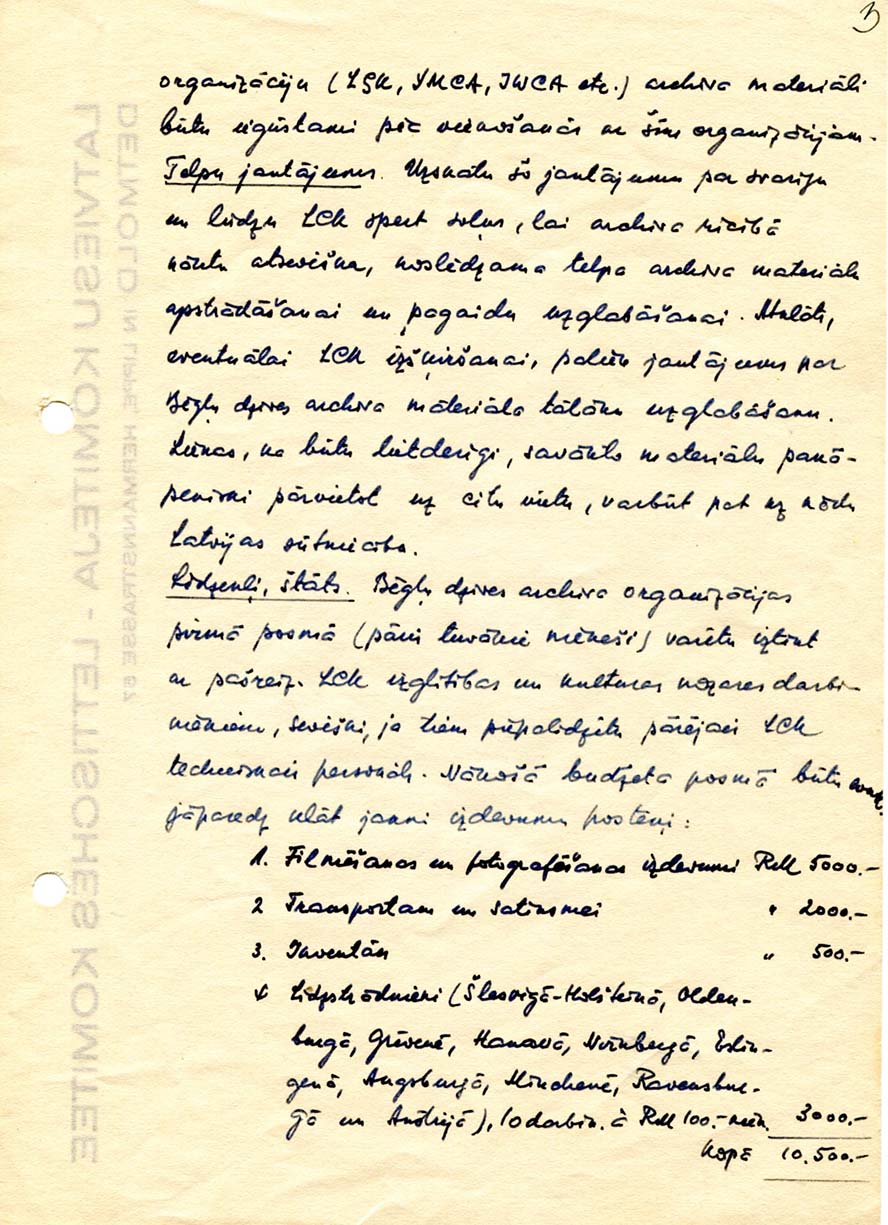 3
organizāciju (LSK, YMCA, IWCA etc.) archiva materiāli
būtu iegūstami pēc vienošanās ar šīm organizācijām.
Telpu jautājums. Uzskatu šo jautājumu par svarīgu
un lūdzu LCK spert soļus, lai archiva rīcībā
nāktu atsevišķa, noslēdzama telpa archiva materiālu
apstrādāšanai un pagaidu uzglabāšanai.
eventuālai LCK izšķiršanai, paliek jautājums par
Bēgļu dzīves archiva materiāla tālāku uzglabāšanu.
Liekas, ka būtu lietderīgi, savākto materiālu pakā-
peniski pārvietot uz citu vietu, varbūt pat uz kādu
Latvijas sūtniecību.
Līdzekļi, štāts. Bēgļu dzīves archiva organizācijas
pirmā posmā (pāri tuvākie mēneši) varētu iztikt
ar pašreiz. LCK izglītības un kultūras nozares darbi-
niekiem, sevišķi, ja tiem piepalīdzētu pārējais LCK
techniskais personāls. Nākošā budžeta posmā būtu
jāparedz klāt jauni izdevumu posteņi:
1. Filmēšanas un fotografēšanas izdevumi RM 5000.-
2 Transportam un satiksmei " 2000.-
3. Inventāra " 500.-
4 Līdzstrādnieki (Šlesvigā-Holšteinā, Olden-
burgā, Grēvenē, Hanavā, Nirnbergā, Eslin-
genā, Augsburgā, Minchenē, Ravensbur-
gā un Austrijā), 10 darbin. à RM 100.- mēn. 3000.-
Kopā 10.500.-
LATVIEŠU KOMITEJA - LETTISCHES KOMITEE
DETMOLD IN LIPPE, HERMANNSTRASSE 67